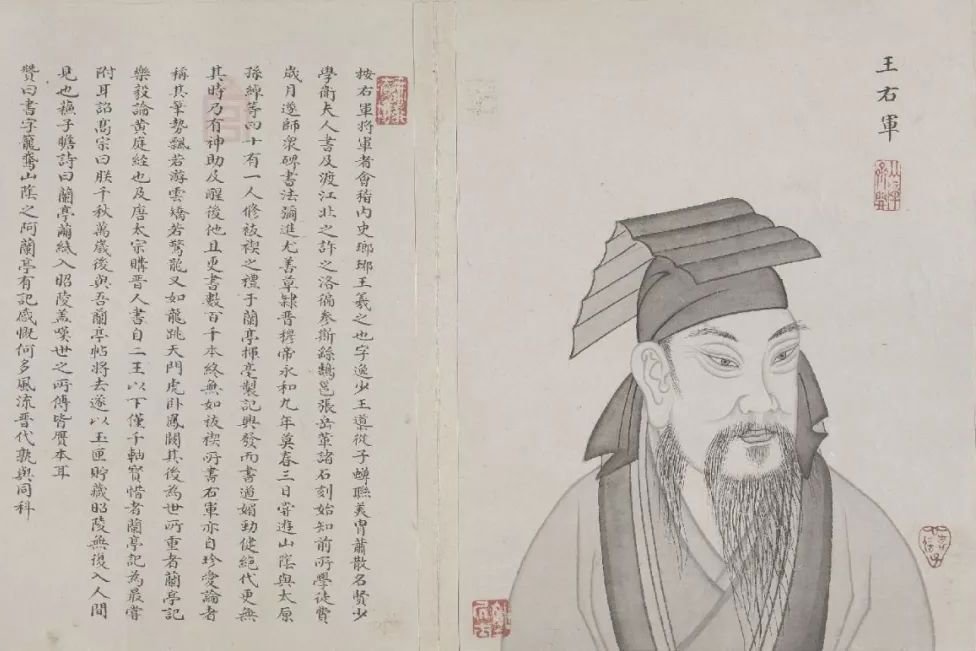 王右軍
按右軍將軍者會稽內史瑯琊王羲之也字逸少王導從子蟬聯美胄蕭散名賢少
學衛夫人書及渡江北之許之洛徧參斯繇鵠邕張岳華諸石刻始知前所學徒費
歲月遂師衆碑書法彌進尤善草隸晉穆帝永和九年莫春三日甞遊山陰與太原
孫綽等四十有一人修祓禊之禮于蘭亭揮毫製記興發而書遒媚勁健絕代更無
其時乃有神助及醒後他日更書數百千本終無如祓禊所書右軍亦自珍愛論者
稱其筆勢飄若游雲矯若驚龍又如龍跳天門虎臥鳳闕其後為世所重者蘭亭記
樂毅論黃庭經也及唐太宗購晉人書自二王以下僅千軸寶惜者蘭亭記為最嘗
附耳詔高宗曰朕千秋萬歲後與吾蘭亭帖將去遂以玉匣貯藏昭陵無復入人間
見也蘓子瞻詩曰蘭亭繭紙入昭陵蓋嘆世之所傳皆贋本耳
贊曰書字籠鵞山陰之阿蘭亭有記感慨何多風流晉代孰與同科